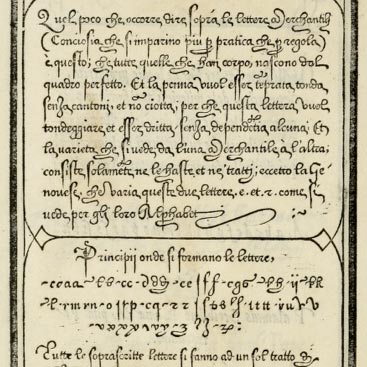 Quel poco che, occorre, dire, sopra, le, lettere, Merchantili
(Conciosia che, si imparino piu p̱ pratica che, p̱ regola)
è questo; che, tutte, quelle, che, han corpo, nascono dal
quadro perfetto. Et la penna vuol esser tẽprata tonda
senza cantoni, et nõ ciotta; per che, questa lettera vuol
tondeggiare, et esser dritta senza dependẽtia alcuna; Et
la varieta che, si vede, da l'una Merchantile, à l'altra;
consiste, solamẽte, ne, le, haste, et ne, tratti; eccetto la Ge
novese, che, varia queste, due, lettere, .e. et .r. come, si
vede, per gli loro Alphabeti
Principij onde, si formano le, lettere,
Tutte, le, soprascritte, lettere, si fanno ad un sol tratto di